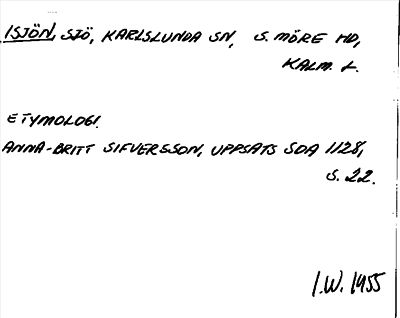 ISJÖN, SJÖ, KARLSLUNDA SN, S. MÖRE HD,
KALM. L.
ETYMOLOGI.
ANNA-BRITT SIFVERSSON, UPPSATS SOA 1128,
S. 22.
I.W. 1955